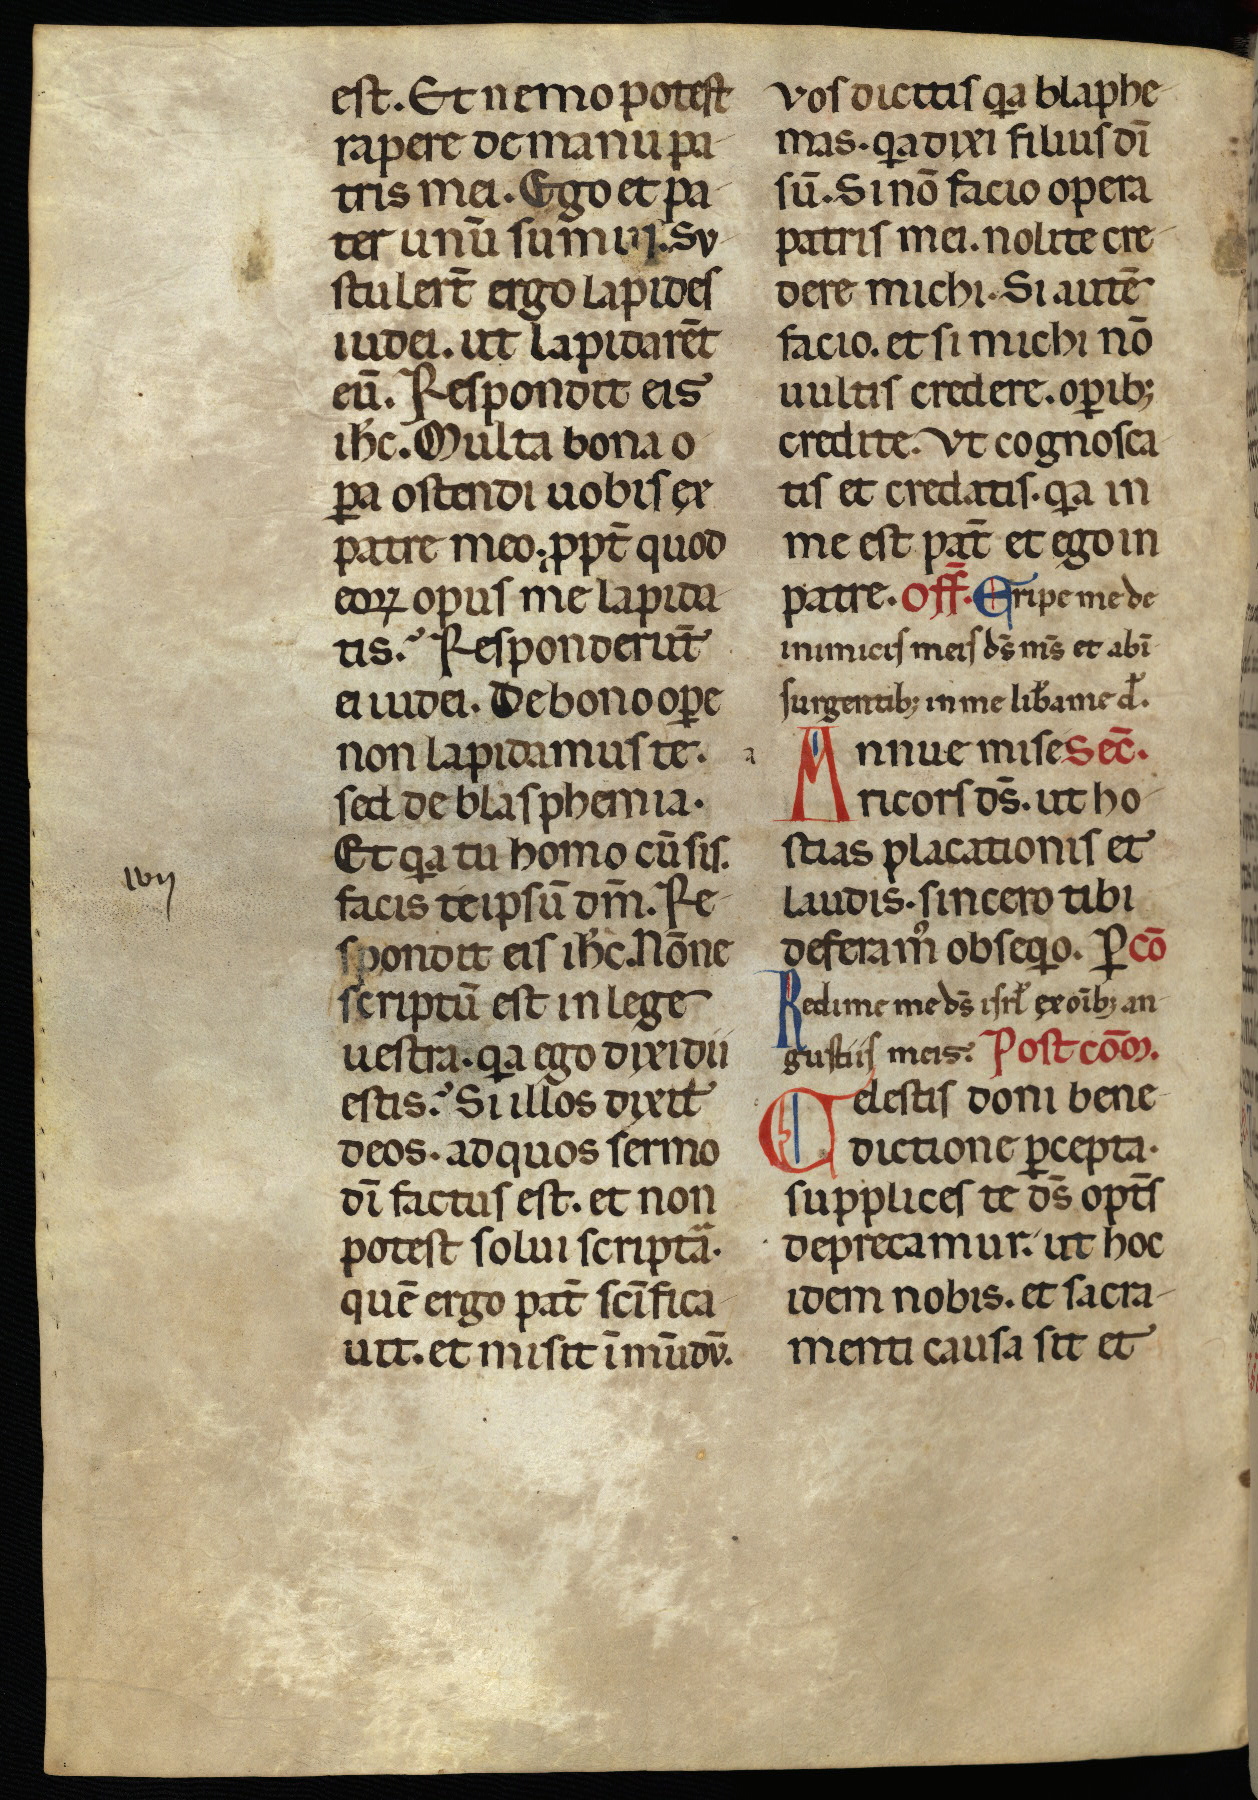 est. Et nemo potest
rapere de manu pa-
tris mei. Ego et pa-
ter unū sumus. Sv-
stulert̄ ergo lapides
iudei. ut lapidarēt
eū. Respondit eis
ih̄c. Multa bona o
ꝑa ostendi uobis ex
patre meo. ꝓpt̄ quod
eoꝝ opus me lapida-
tis.᾽ Responderūt
ei iudei. De bono oꝑe
non lapidamus te.
sed de blasphemia.
Et qͣa tu homo cū sis.
facis teipsū dm̄. Re-
spondit eis ih̄c. Nōne
scriptū est in lege
uestra. qͣa ego dixi dii
estis.᾽ Si illos dixit
deos. ad quos sermo
dī factus est. et non
potest solui scriptͣa.
quē ergo pat̄ scīfica-
uit. et misit ī mūdv̄.
ivij
vos dicitis qͣa blaphe-
mas. qͣa dixi filius dī
sū. Si nō facio opera
patris mei. nolite cre-
dere michi. Si autē
facio. et si michi nō
uultis credere. oꝑibꝫ
credite. Vt cognosca-
tis et credatis. qͣa in
me est pat̄ et ego in
patre. Off̄. Eripe me de
inimicis meis ds̄ ms̄ et ab ī-
surgentibꝫ in me lib̄a me d̄.
a
Annue mise Sec̄.
ricors ds̄. ut ho-
stias placationis et
laudis. sincero tibi
deferamꝰ obseqͦo. Ꝑ cō
Redime me ds̄ isrl̄ ex oībꝫ an-
gustiis meis. Post cōm̄.
Celestis doni bene-
dictione ꝑcepta.
supplices te ds̄ opt̄s
deprecamur. ut hoc
idem nobis. et sacra-
menti causa sit et